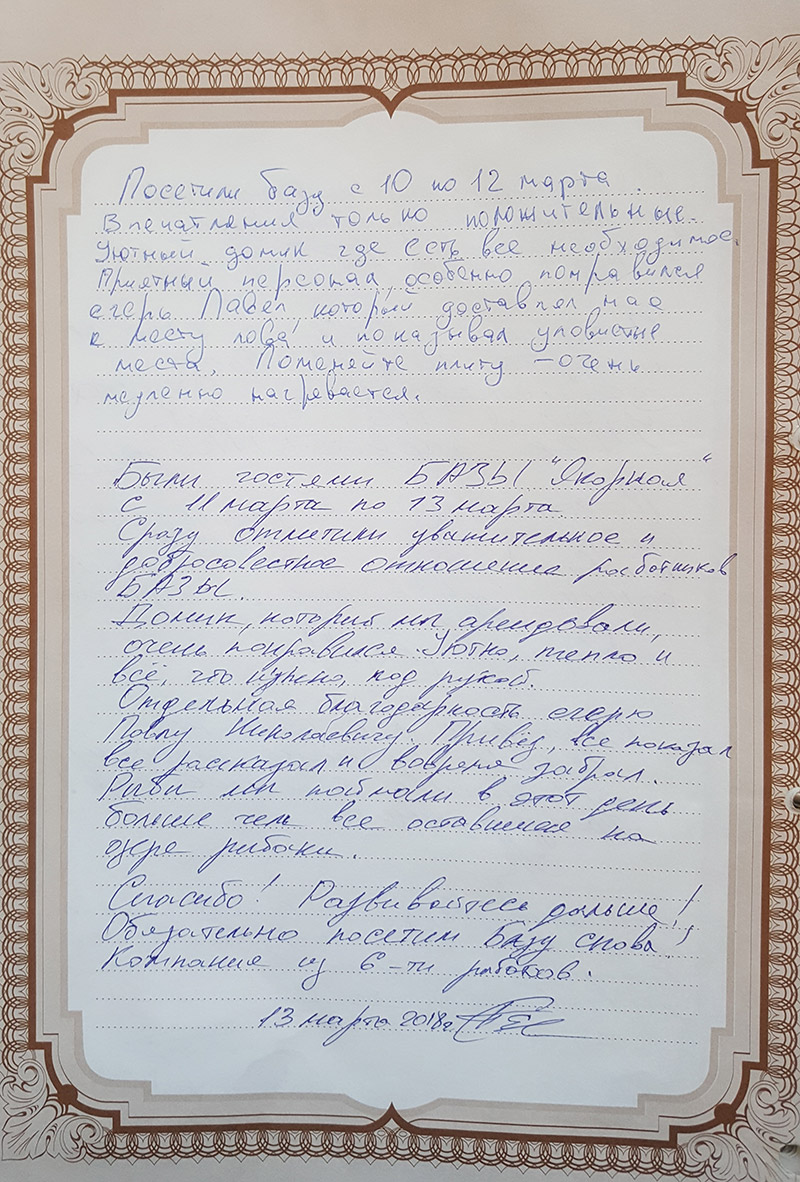 Посетили базу с 10 по 12 марта.
Впечатления только положительные.
Уютный домик где есть все необходимое.
Приятный персонал, особенно понравился
егерь Павел который доставлял нас
к месту лова и показывал уловистые
места. Поменяйте плиту – очень
медленно нагревается.
Были гостями БАЗЫ "Якорная"
с 11 марта по 13 марта
Сразу отметили уважительное и
добросовестное отношение работников
БАЗЫ.
Домик, который мы арендовали,
очень понравился. Уютно, тепло и
всё, что нужно, под рукой.
Отдельная благодарность егерю
Павлу Николаевичу. Привёз, все показал
все рассказал и вовремя забрал.
Рыбы мы поймали в этот день
больше чем все оставшиеся на
озере рыбаки.
Спасибо! Развивайтесь дальше!
Обязательно посетим базу снова!
Компания из 6-ти рыбаков.
13 марта 2018г.